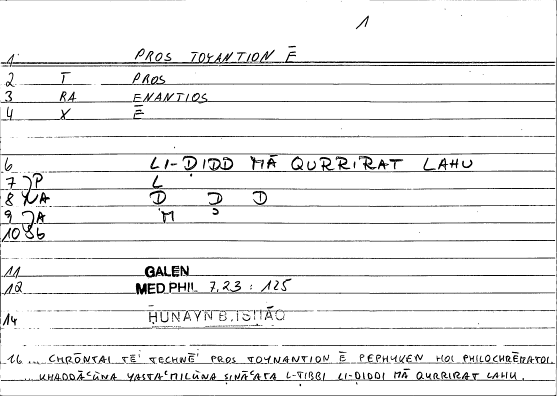 1
1 PROS TOYANTION Ē
2 T PROS
3 RA ENANTIOS
4 X Ē
6 LI-ḌIDD MĀ QURRIRAT LAHU
7 P L
8 NA Ḍ D D
9 JA M
10 Sb
11 GALEN
12 MED.PHIL 7,23 : 125
14 ḤUNAYN B. ISḤĀQ
16 ... CHRŌNTAI TĒ TECHNĒ PROS TOYNANTION Ē PEPHYKEN HOI PHILOCHRĒMATOI.
... YASTAʿMILŪNA ṢINĀʿATA L-ṬIBBI LI-ḌIDDI MĀ QURRIRAT LAHU.